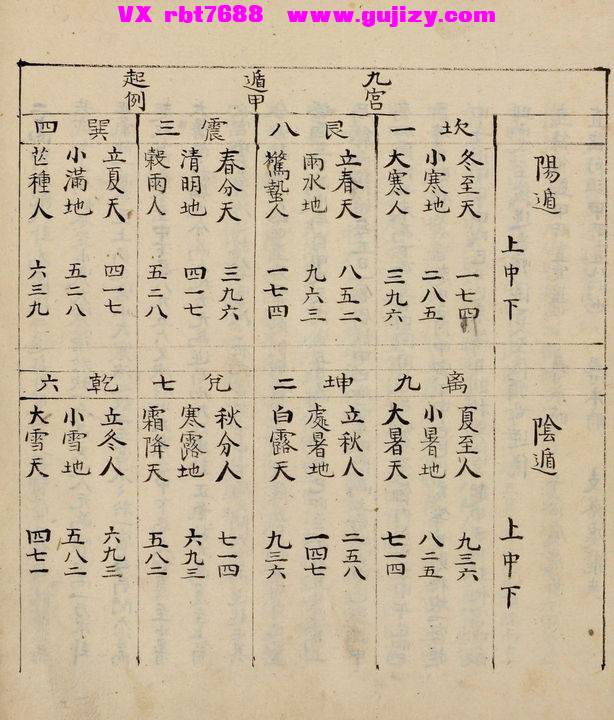 VX rbt7688 www.gujizy.com
九宮
遁甲
起例
陽遁
上中下
坎一
冬至天 一七四
小寒地 二八五
大寒人 三九六
艮八
立春天 八五二
雨水地 九六三
驚蟄人 一七四
震三
春分天 三九六
清明地 四一七
榖雨人 五二八
巽四
立夏天 四一七
小滿地 五二八
芒種人 六三九
陰遁
上中下
离九
夏至人 九三六
小暑地 八二五
大暑天 七一四
坤二
立秋人 二五八
處暑地 一四七
白露天 九三六
兌七
秋分人 七一四
寒露地 六九三
霜降天 五八二
乾六
立冬人 六九三
小雪地 五八二
大雪天 四七一